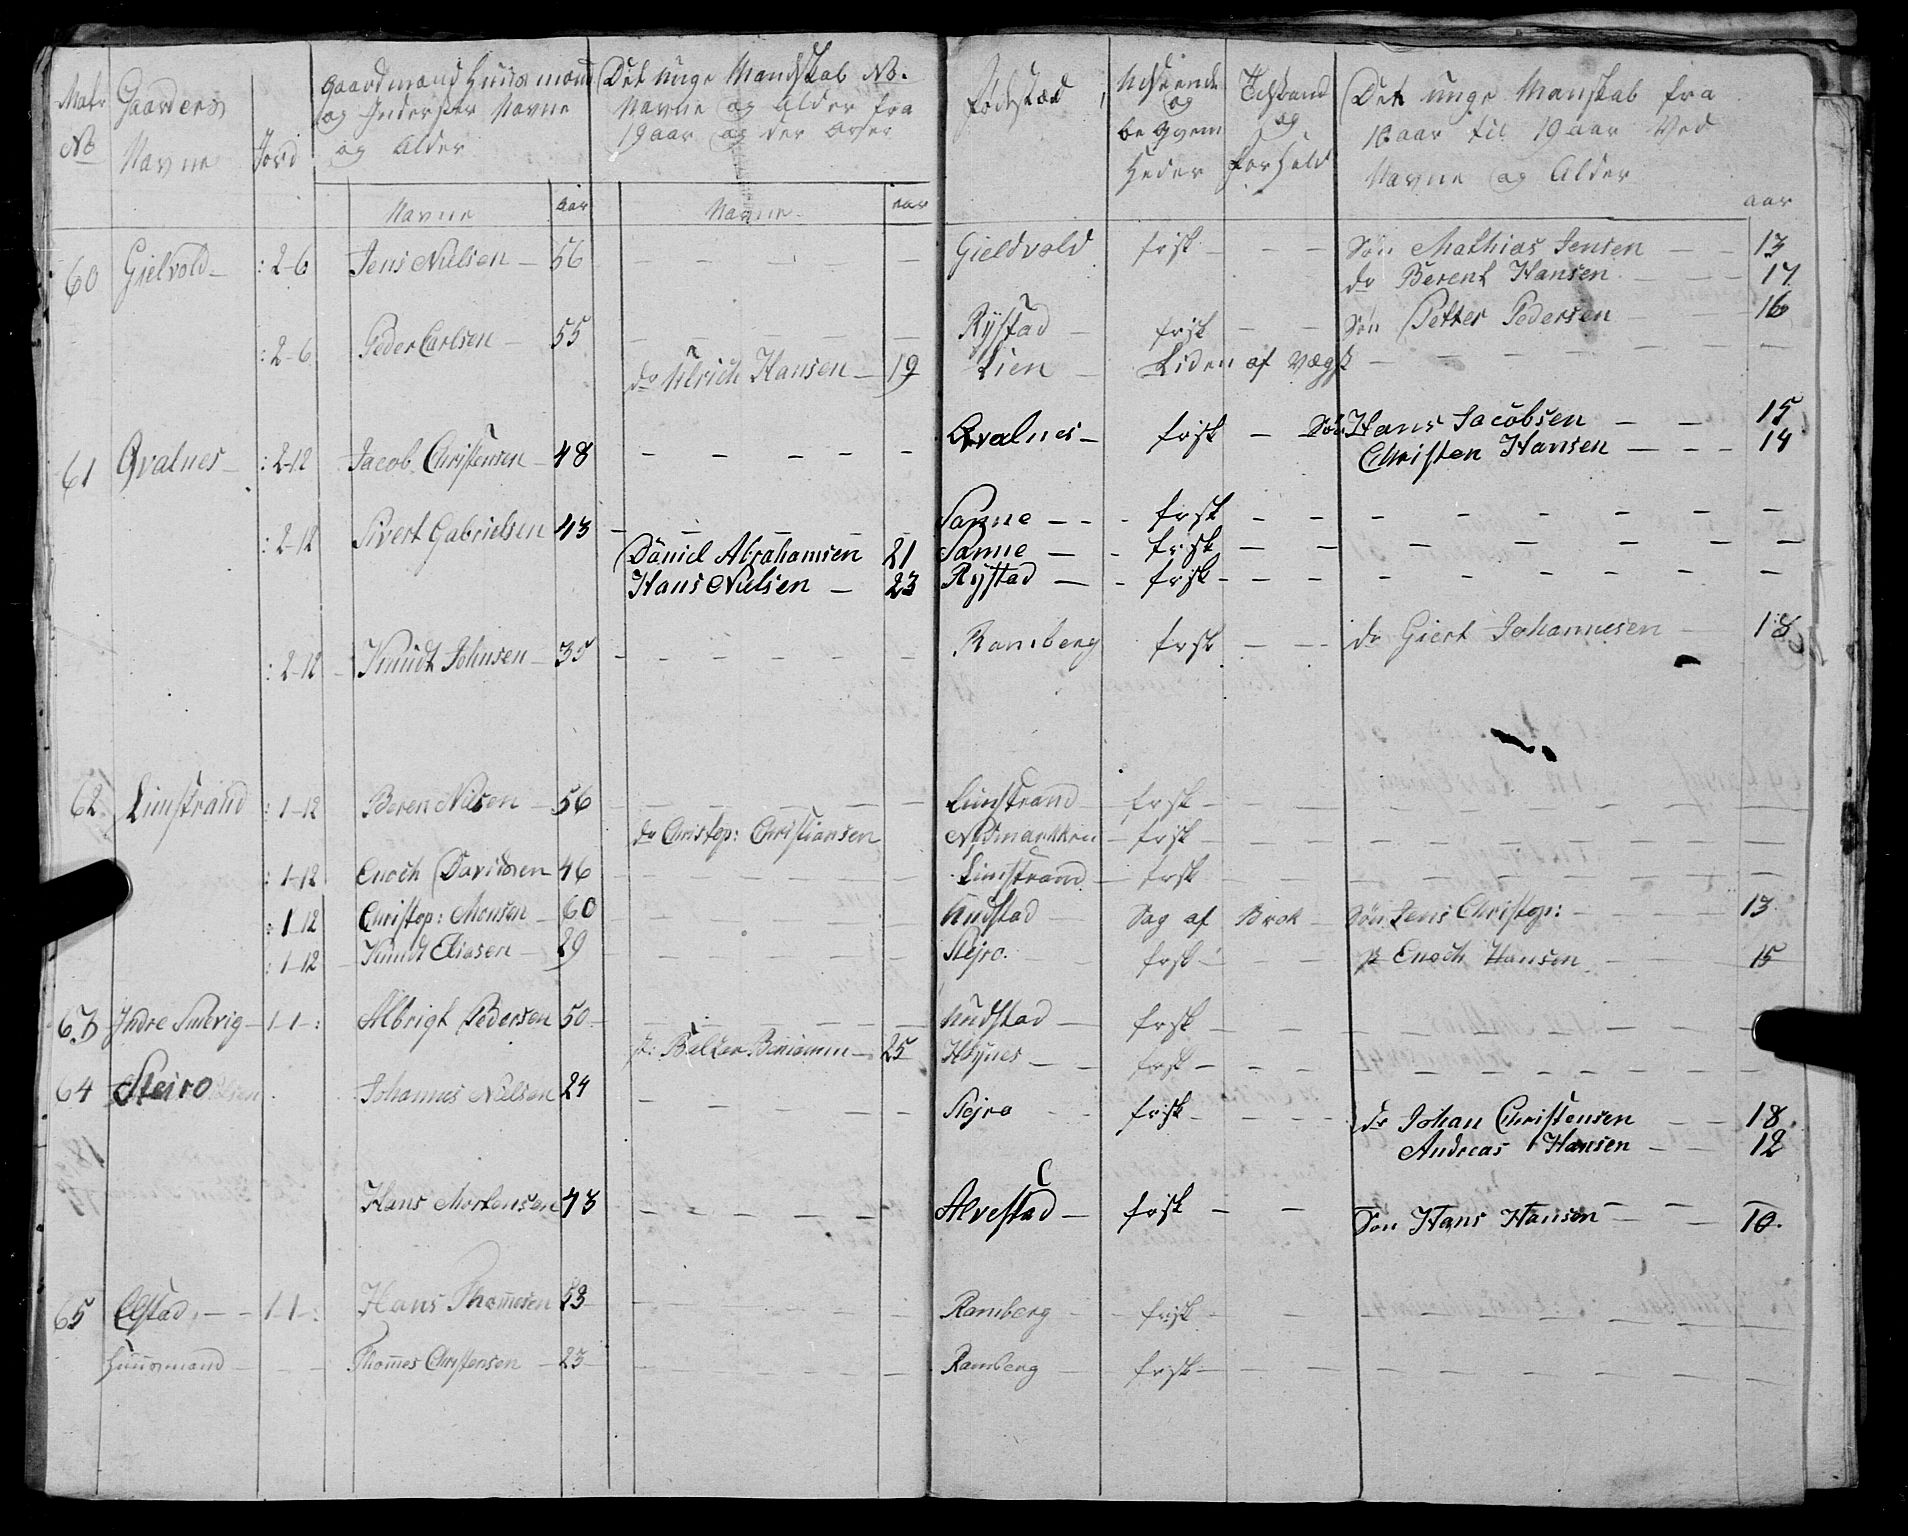 Matr No | Gaardens Navne | Jord | Gaardmand Huusmænd og Inderster Navne og Alder | Det unge Mandskab No. Navne og Alder fra 19 aar og der over | Fødsted | Udseende og beqvemheder | Tilstand og Forhold | Det unge Manskab fra 10 aar til 19 aar Ved Navne og Alder
Navne | aar | Navne | aar | aar
60 Gielvold : 2-6 Jens Nielsen 56 — Gieldvold frisk — Søn Mathias Jensen 13
do Berent Hansen 17
: 2-6 Peder Carlsen 55 — Rystad frisk — Søn Petter Pedersen 16
do Ulrich Hansen 19 Lien Liden af Vægst —
61 Qvalnes : 2-12 Jacob Christensen 48 — Qvalnes frisk — Søn Hans Jacobsen 15
Christen Hansen 14
: 2-12 Sivert Gabrielsen 43 — Sanne frisk —
Daniel Abrahamsen 21 Sanne frisk —
Hans Nielsen 23 Rystad frisk —
: 2-12 Knudt Johnsen 35 — Ramberg frisk — do Giert Johannesen 18
62 Limstrand : 1-12 Beren Nilsen 56 — Limstrand frisk —
do Christop: Christiansen frisk —
: 1-12 Enoch Davidsen 46 — Limstrand frisk —
: 1-12 Christop: Monsen 60 — Uudstad Sag af Brok Søn Jens Christop: 13
: 1-12 Knudt Eliasen 29 — Stejro. frisk — Enoch Hansen 15
63 Indre Smevig 1-1-: Albrigt Pedersen 50 — Uudstad frisk —
Baltzer Beniamin 25 Høynes frisk —
64 Steiro Johannes Nilsen 24 — Stejro frisk — do Johan Christensen 18
Andreas Hansen 12
Hans Mortensen 43 — Alvestad frisk — Søn Hans Hansen 10.
65 Elstad 1-1-: Hans Thomesen 53 — Ramberg frisk —
Huusmand — Thomes Christensen 23 — Ramberg frisk —